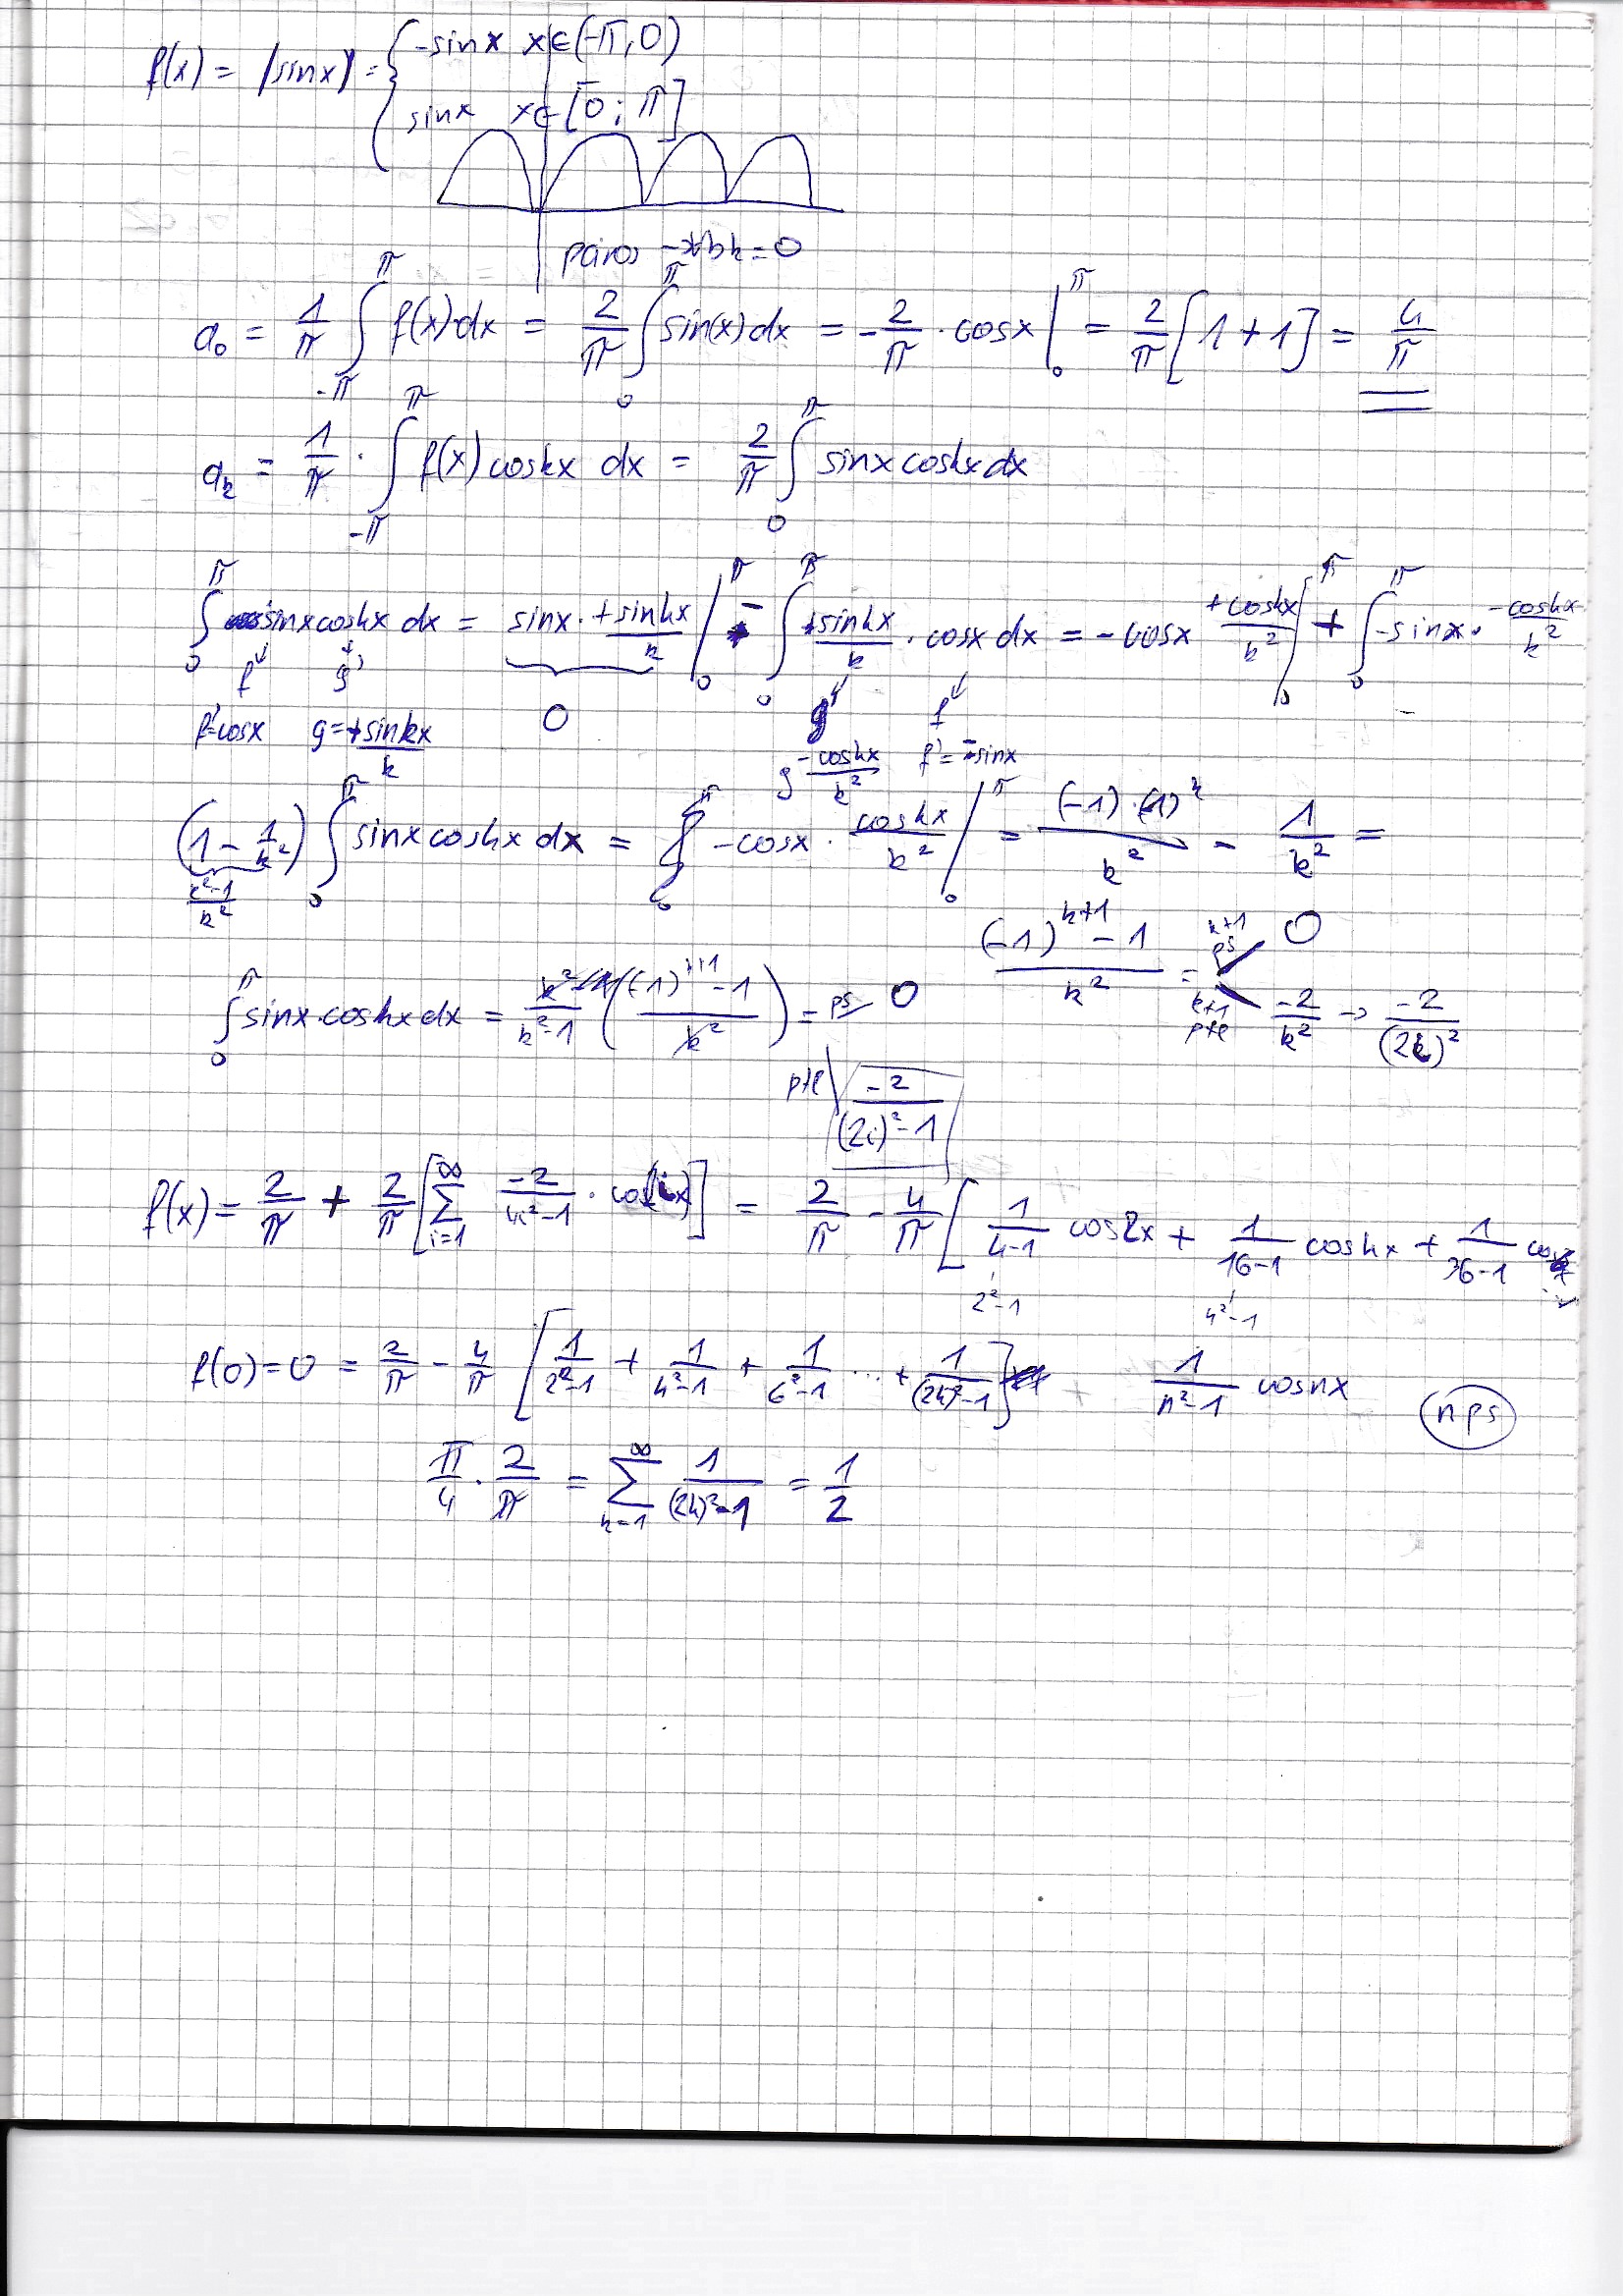 f(x) = |sinx| = { -sinx x∈(-π,0)
sinx x∈[0; π]
páros → bk = 0
a₀ = 1/π ∫_{-π}^{π} f(x)·dx = 2/π ∫_0^π sin(x)dx = -2/π · cosx |_0^π = 2/π [1+1] = 4/π
a_k = 1/π · ∫_{-π}^{π} f(x) coskx dx = 2/π ∫_0^π sinx coskx dx
∫_0^π sinx coskx dx = sinx · +sinkx/k |_0^π - ∫_0^π +sinkx/k · cosx dx = -cosx +coskx/k² |_0^π + ∫_0^π -sinx · -coskx/k²
f g' 0 g' f
f'=cosx g=+sinkx/k g -coskx/k² f'=-sinx
(1 - 1/k²) ∫_0^π sinx coskx dx = -cosx · coskx/k² |_0^π = (-1)·(-1)^k/k² - 1/k² =
k²-1/k²
(-1)^{k+1} - 1/k² = k+1 ps 0
k+1 ptl -2/k² → -2/(2k)²
∫_0^π sinx·coskx dx = k²/k²-1 ((-1)^{k+1} - 1/k²) = ps 0
ptl -2/(2i)²-1
f(x) = 2/π + 2/π [∑_{i=1}^∞ -2/4i²-1 · cos(ix)] = 2/π - 4/π [1/4-1 cos2x + 1/16-1 cos4x + 1/36-1
2²-1 4²-1
f(0)=0 = 2/π - 4/π [1/2²-1 + 1/4²-1 + 1/6²-1 ... + 1/(2k)²-1] + 1/n²-1 cosnx nps
π/4 · 2/π = ∑_{k=1}^∞ 1/(2k)²-1 = 1/2